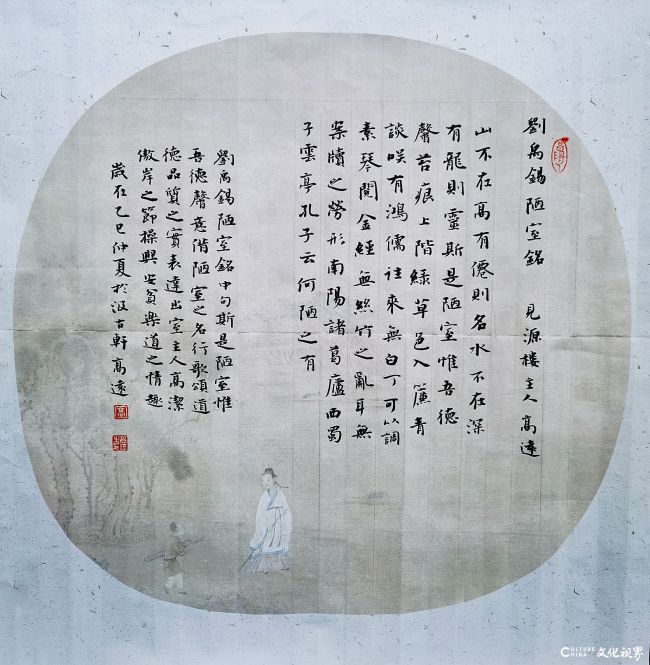 劉禹錫陋室銘 見源楼主人高遠
山不在高有僊則名水不在深
有龍則靈斯是陋室惟吾德
馨苔痕上階緑草色入簾青
談咲有鴻儒往來無白丁可以調
素琴閲金經無絲竹之亂耳無
案牘之勞形南陽諸葛廬西蜀
子雲亭孔子云何陋之有
劉禹錫陋室銘中句斯是陋室惟
吾德馨意偕陋室之名行歌頌道
德品質之實表達出室主人高潔
傲岸之節操與安貧樂道之情趣
歲在乙巳仲夏於汲古軒高遠
高
CULTURE CHINA 文化视界